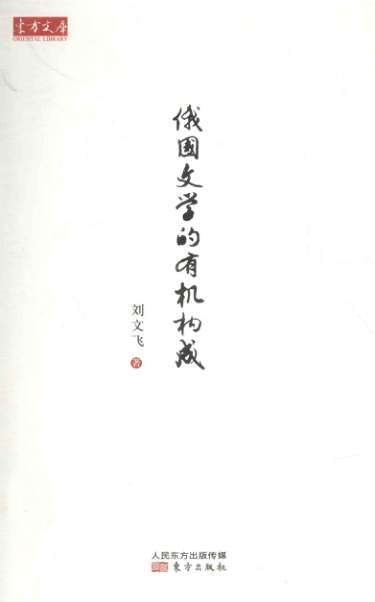 东方文库
ORIENTAL LIBRARY
俄国文学的有机构成
刘文飞 著
人民东方出版传媒
东方出版社